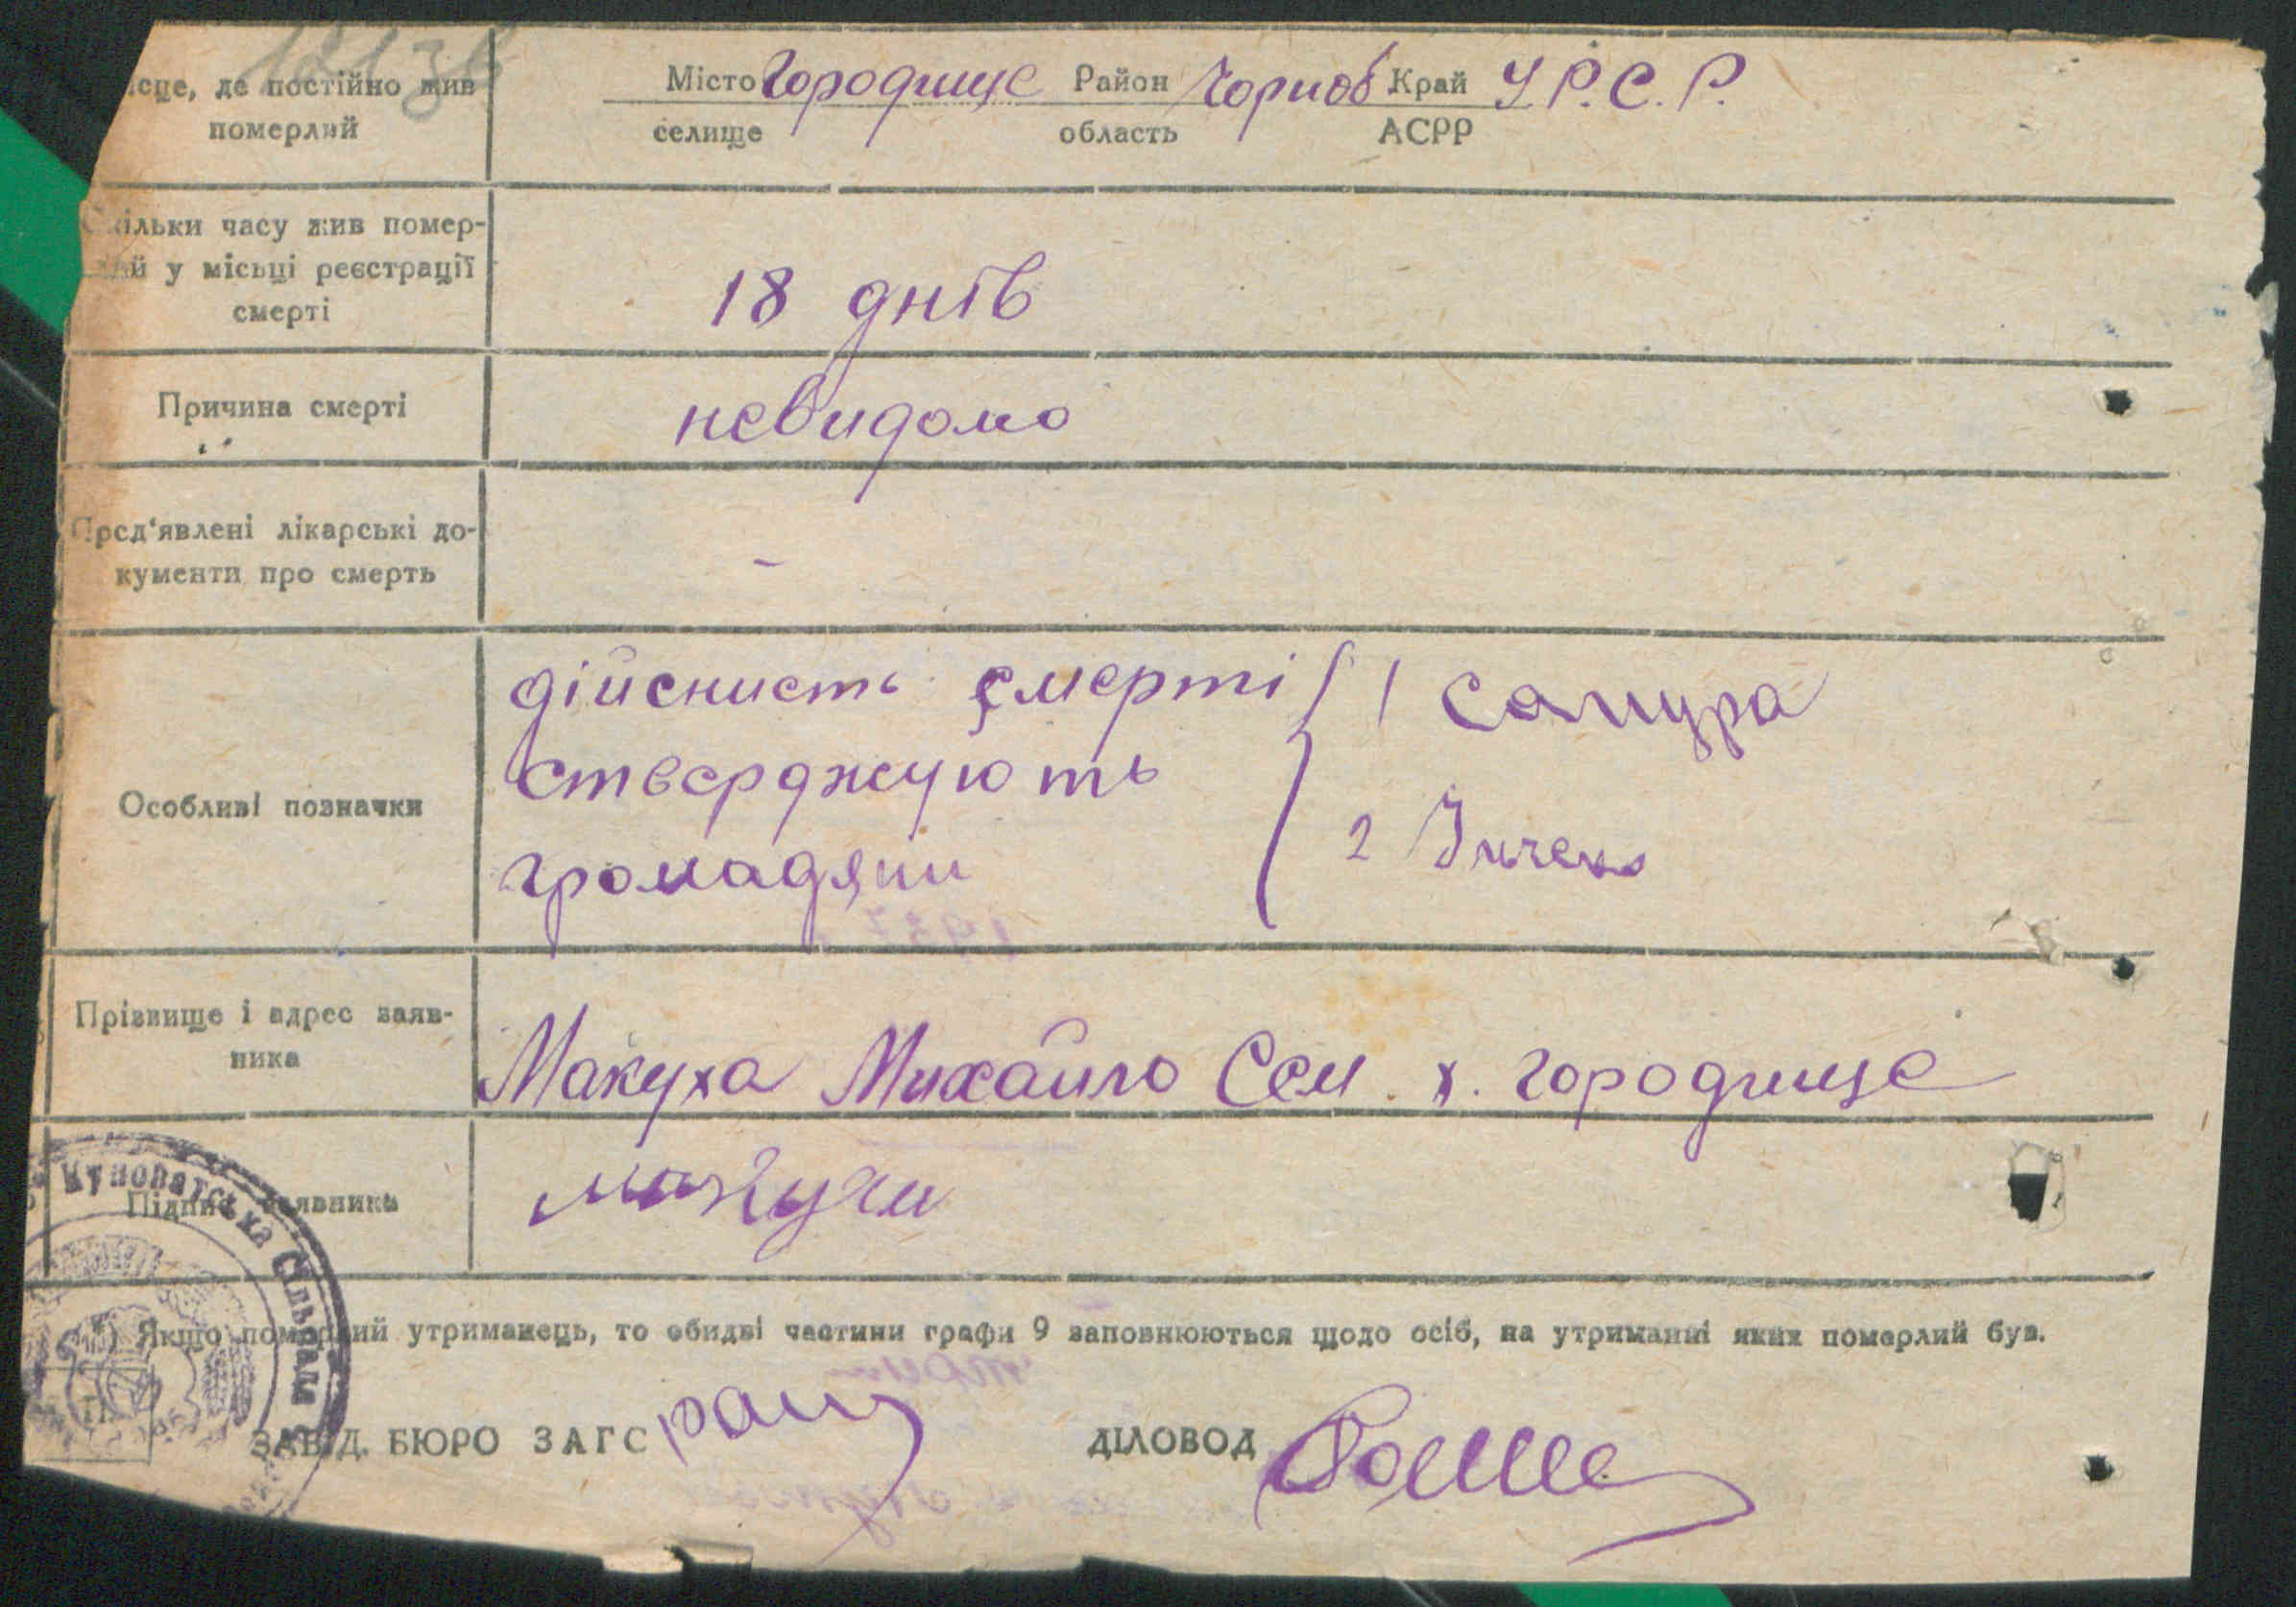 1213
ісце, де постійно жив
померлий
Місто Городище Район Чорноб Край У.Р.С.Р.
селище область АСРР
Скільки часу жив помер-
лий у місьці реєстрації
смерті
18 днів
Причина смерті
невидомо
Пред'явлені лікарські до-
кументи про смерть
-
Особливі позначки
дійснисть смерті
стверджують
громадяни
1 Сацура
2
Прізвище і адрес заяв-
ника
Макуха Михайло Сем. х. Городище
Підпис заявника
Макуха
Куповатська Сільрада
*) Якщо померлий утриманець, то обидві частини графи 9 заповнюються щодо осіб, на утриманні яких померлий був.
ЗАВІД. БЮРО ЗАГС
ДІЛОВОД